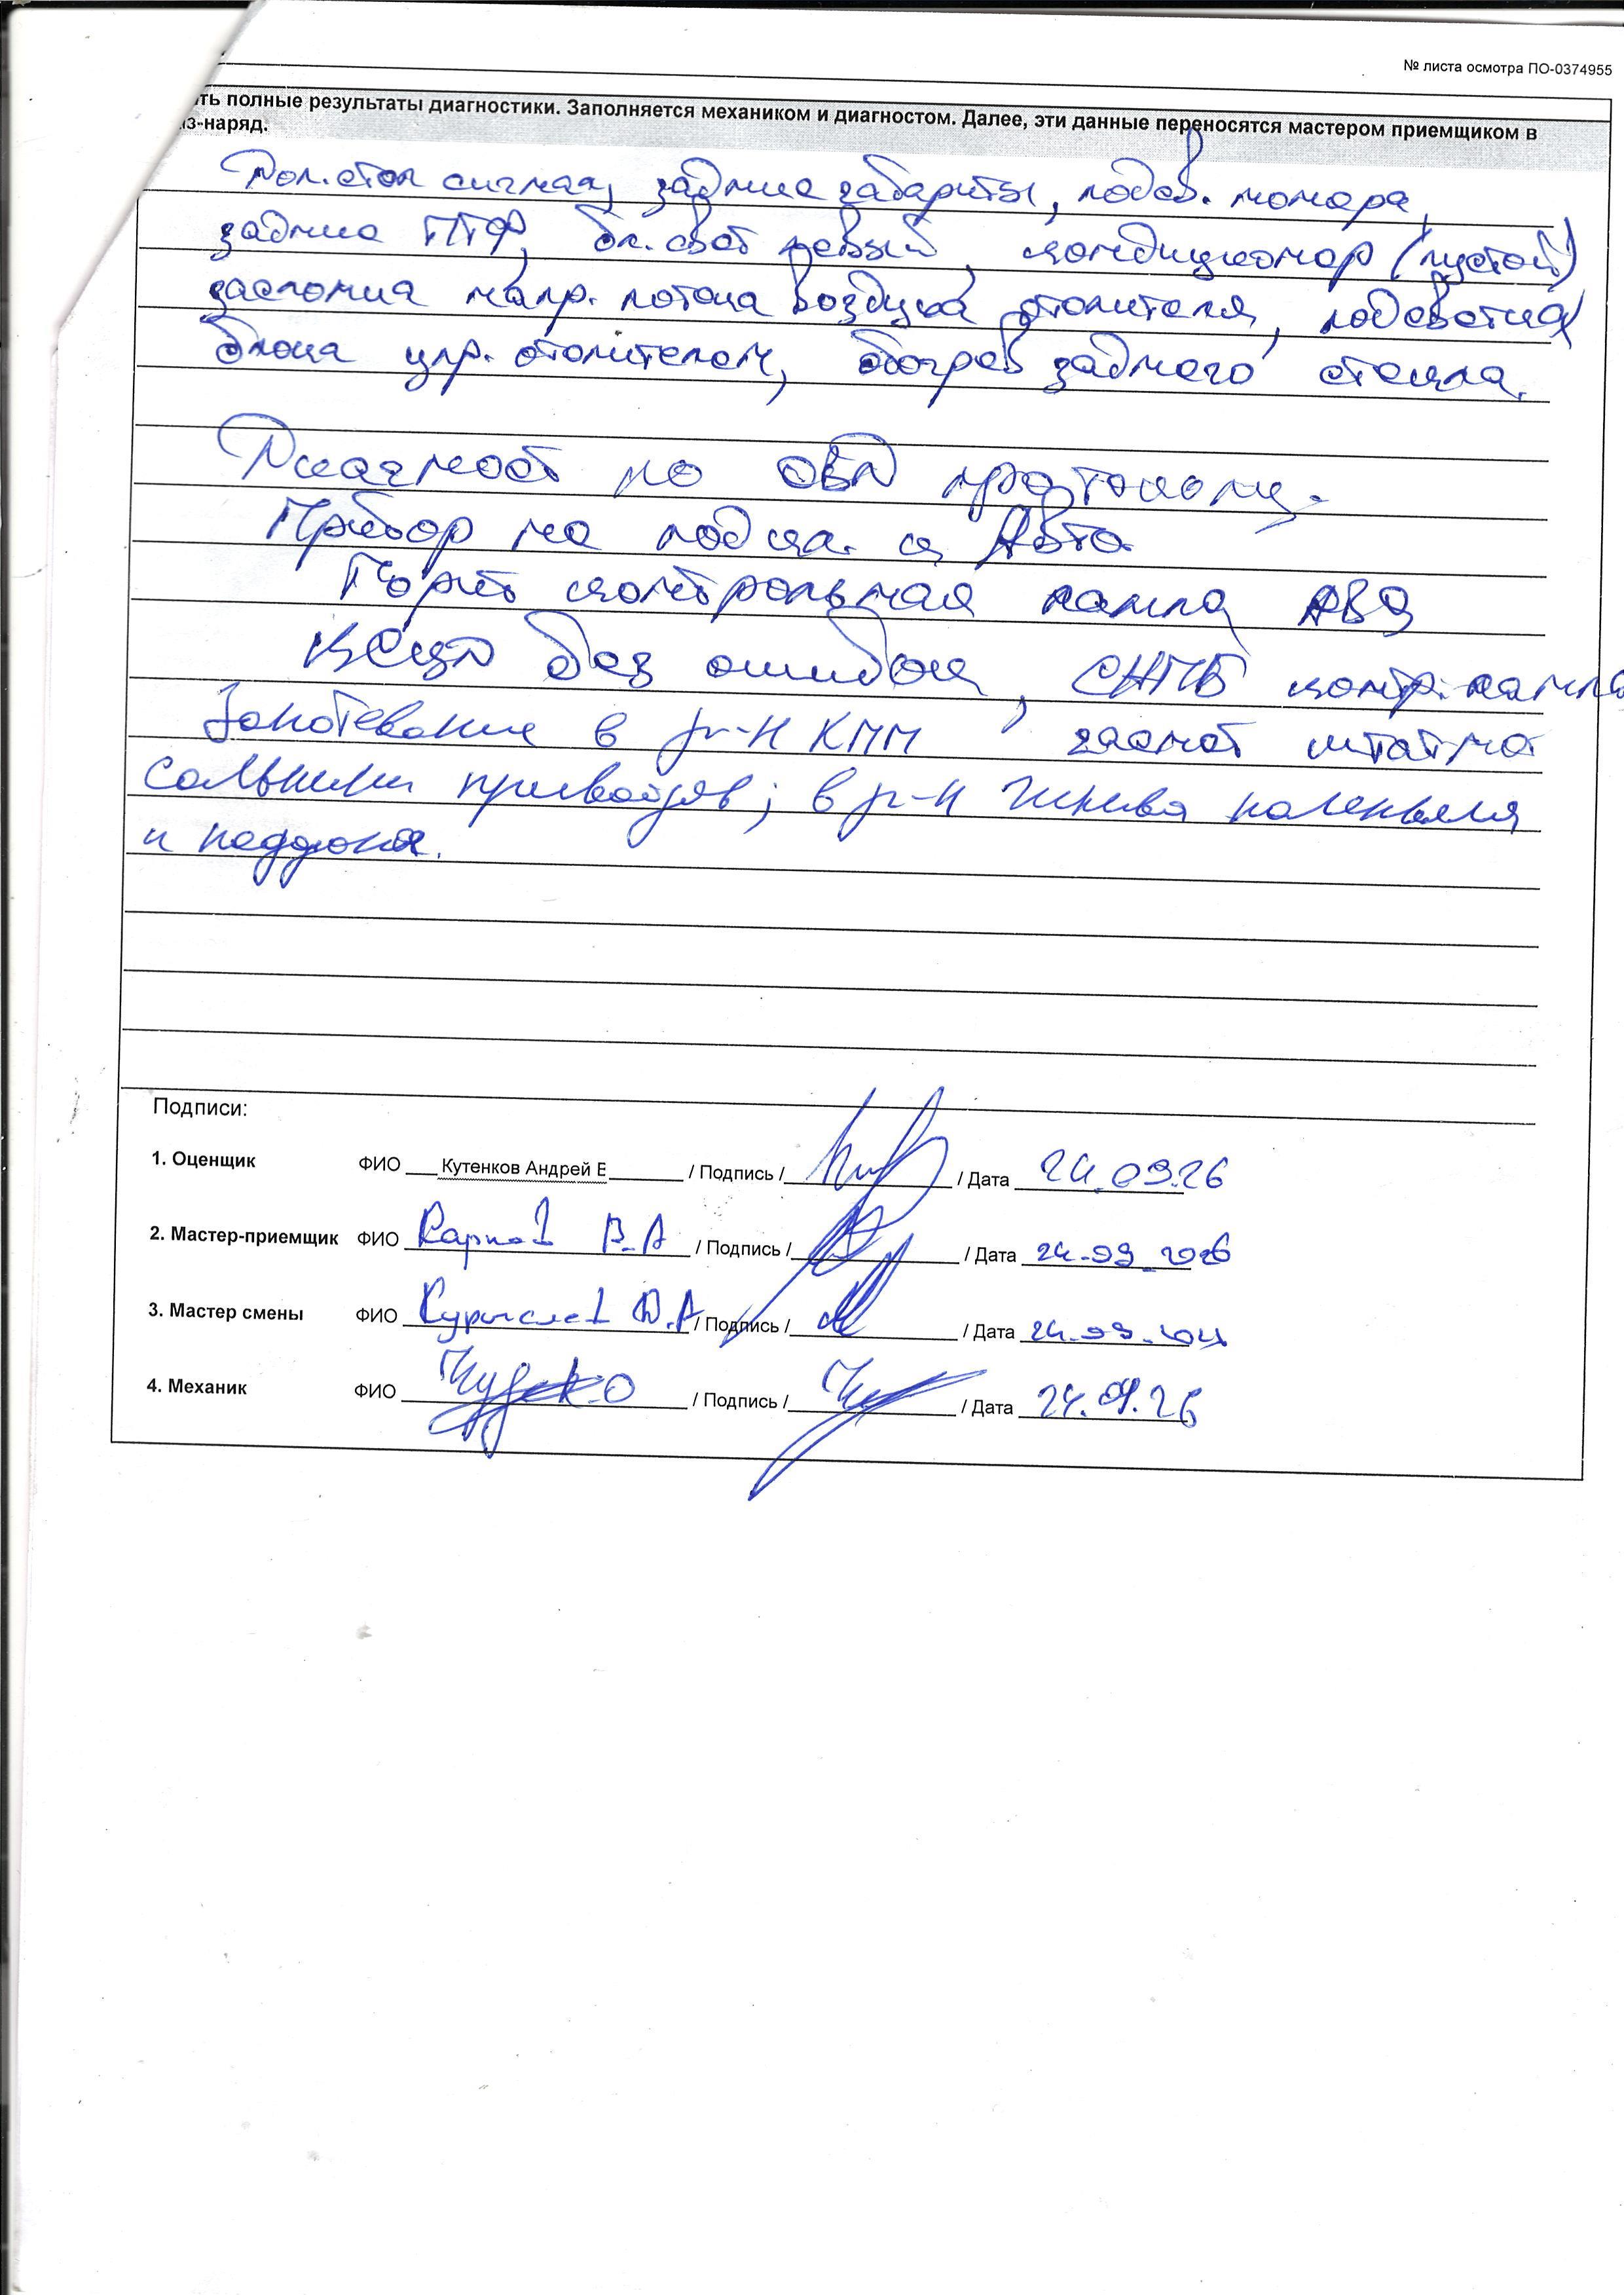 № листа осмотра ПО-0374955
ть полные результаты диагностики. Заполняется механиком и диагностом. Далее, эти данные переносятся мастером приемщиком в
з-наряд.
Доп. стоп сигнал, задние габариты, подсв. номера,
задние ПТФ, бл. свет левый, кондиционер (пустой)
заслонка напр. потока воздуха отопителя, подсветка
блока упр. отопителем, обогрев заднего стекла.
Диагност по ОБД протоколу.
Прибор не подкл. к Авто
Горит контрольная лампа
без ошибок, контр. лампа
Запотевание в р-н КПП гаснет штатно
сальники приводов; в р-н шкива коленвала
и поддона.
Подписи:
1. Оценщик ФИО Кутенков Андрей Е / Подпись / / Дата 24.09.26
2. Мастер-приемщик ФИО Карпов В.А / Подпись / / Дата 24.09.2026
3. Мастер смены ФИО Д.А / Подпись / / Дата
4. Механик ФИО / Подпись / / Дата 24.09.26